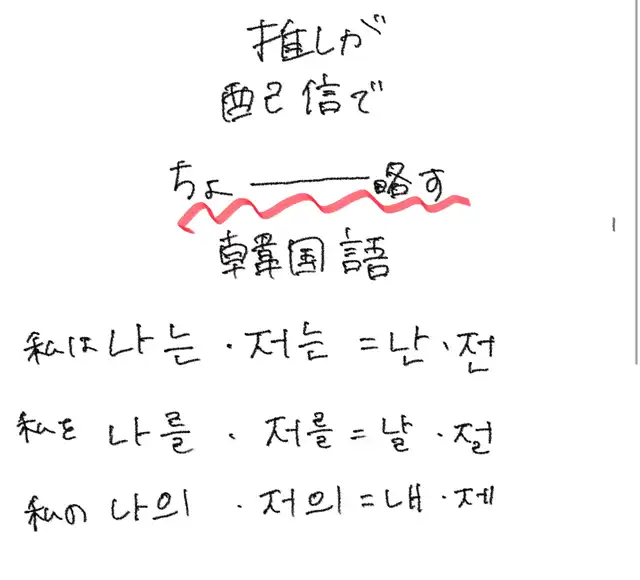 推しが
配信で
ちょ———略す
韓国語
私は 나는・저는=난・전
私を 나를・저를=날・절
私の 나의・저의=내・제